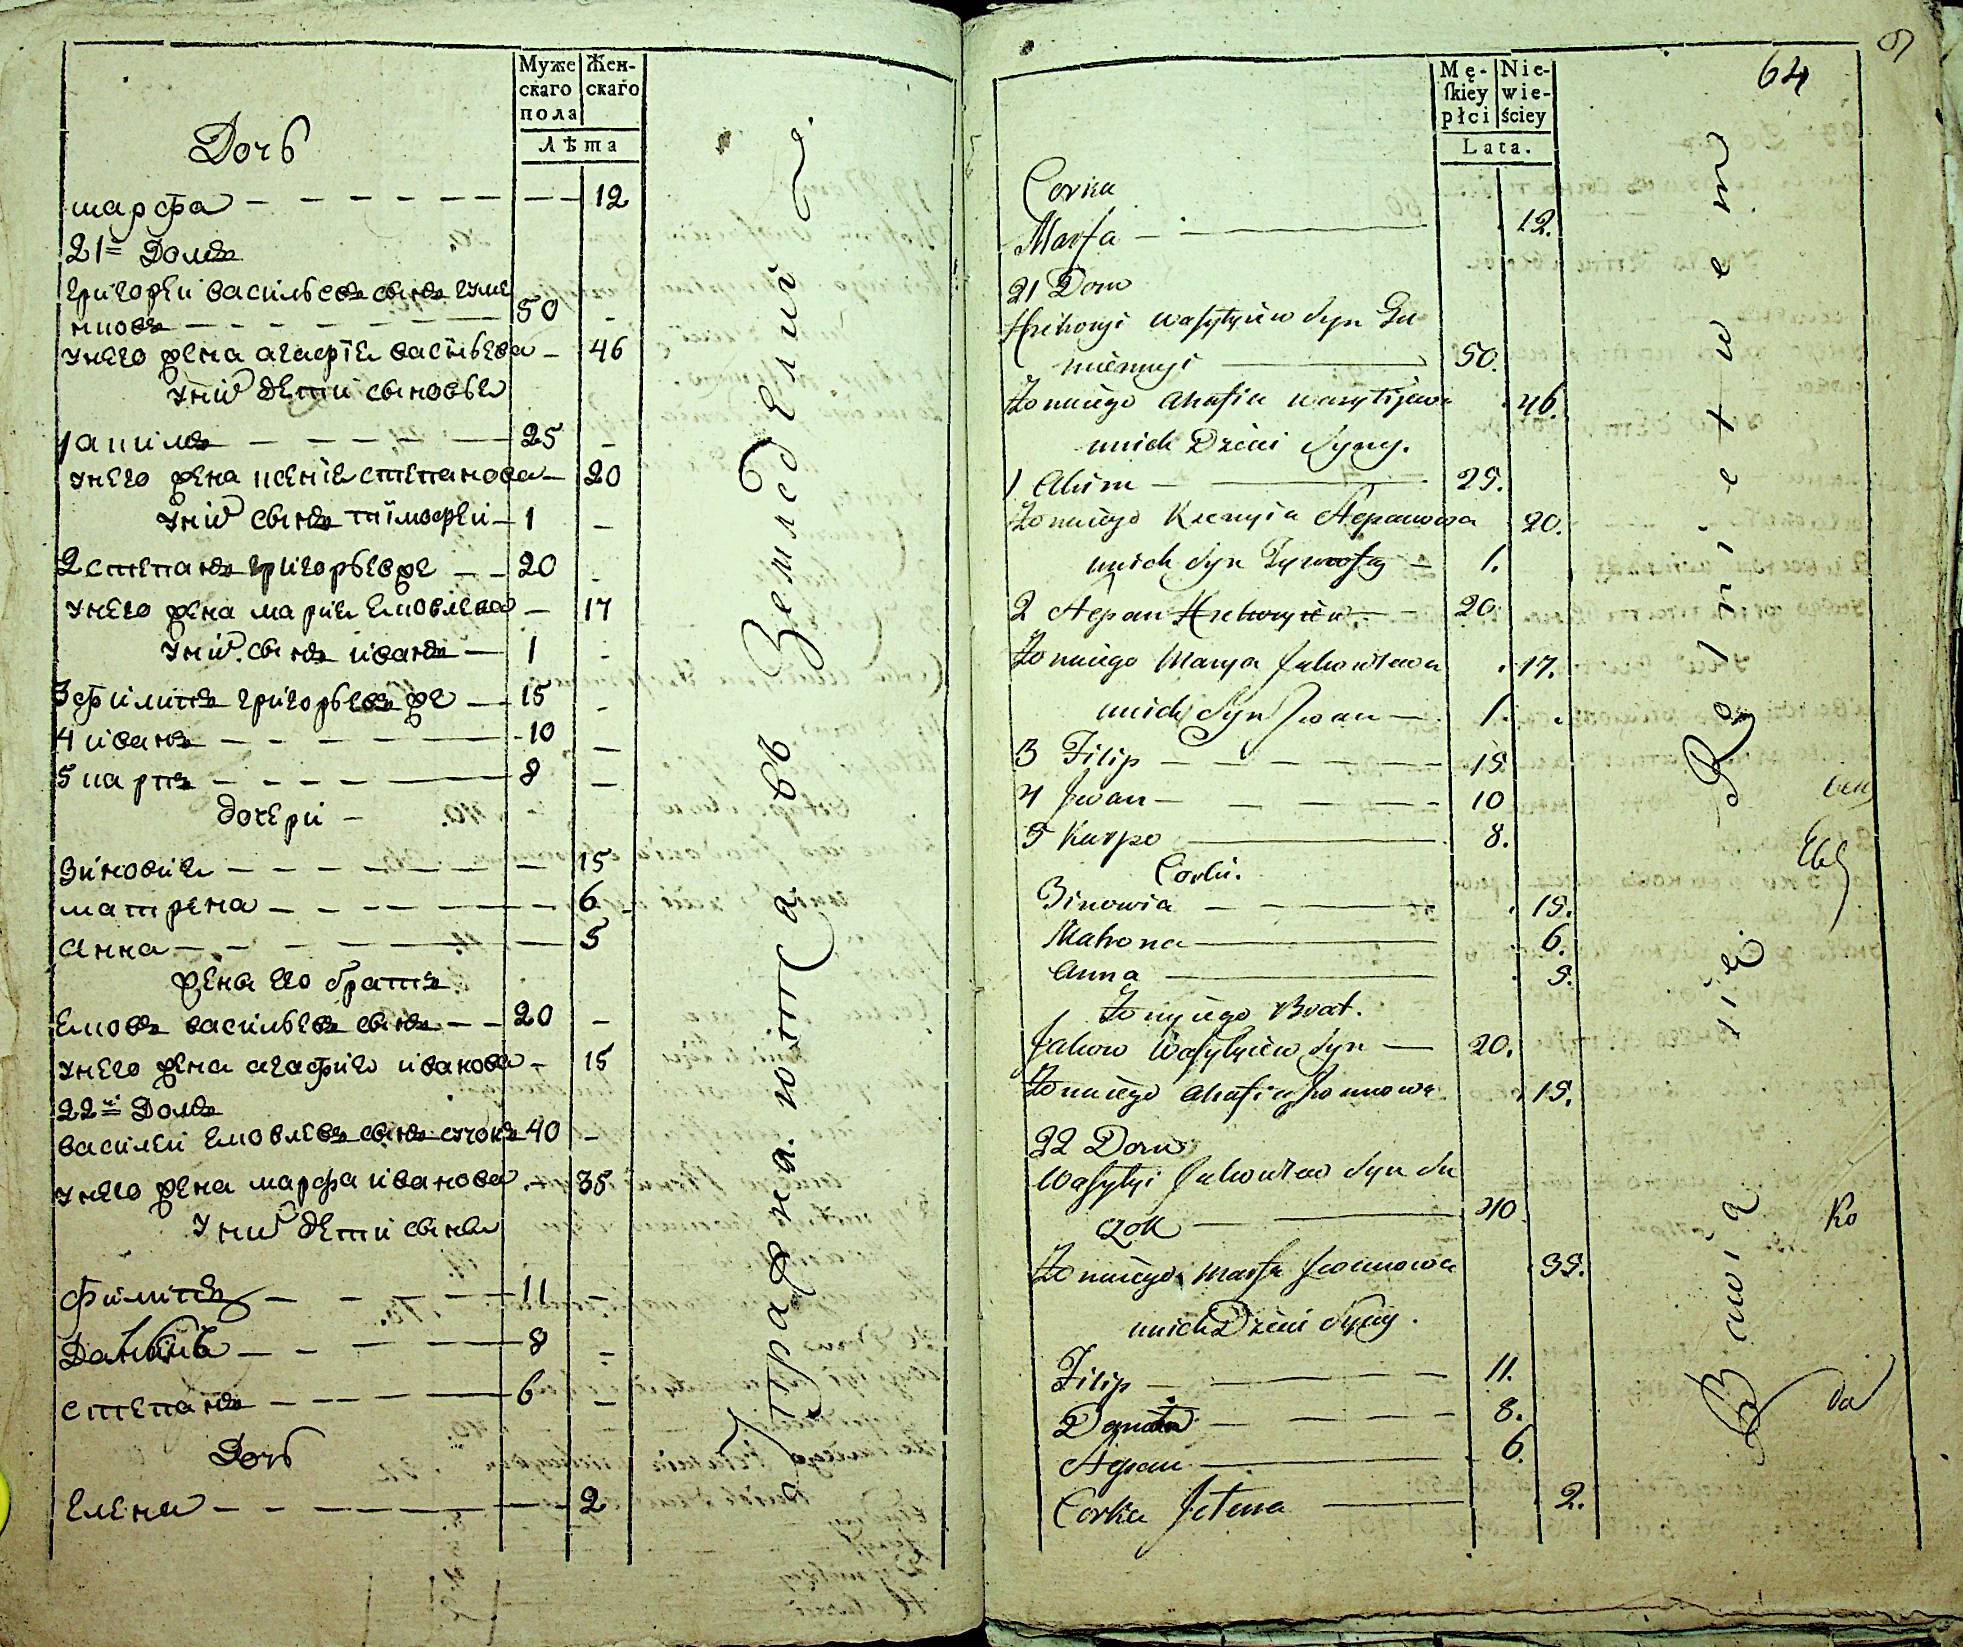 Муже
скаго
пола
Жен-
скаго
Лѣта
Дочь
марфа 12
21 Домъ
григореи василь евъ сынъ гуме
нновъ 50
унего жена агафия васильева 46
униⷯ дети сыновье
1 аким 25
унего жена ксения степанова 20
униⷯ сынъ тимофеи 1
2 степанъ григорьев же 20
унего жена мария яковлева 17
униⷯ сынъ иванъ 1
3 филипъ григорьевъ же 15
4 иванъ 10
5 карпъ 8
дочери
зиновия 15
матрена 6
анна 5
жены его братъ
яковъ васильевъ сынъ 20
унего жена агафия иванова 15
22й Домъ
василеи яковлевъ сынъ сучокъ 40
унего жена марфа иванова 35
униⷯ дети сыны
филипъ 11
8
степанъ 6
Дочь
елена 2
упражняются въ Земледелии
64
Mę-
ſkiey
płci
Nie-
wie-
ściey
Lata.
Corka
Marfa 12.
21 Dom
Hrehoryi Wasylyiew Syn Gu
miennyi 50.
Żonaiego Ahafia Wasylyiewa 46.
unich Dzieci Syny.
1 Akim 25.
Żonaiego Ksenyia Stepanowa 20.
unich Syn Tymofiy 1.
2 Stepan Hrehoryiew 20
Żonaiego Marya Jakowlewa 17.
unich Syn Jwan 1.
3 Filip 15
4 Jwan 10
5 Karpo 8.
Corki.
Zinowia 15.
Matrona 6.
Anna 5.
Żonyiego Brat.
Jakow Wasylyiew Syn 20.
Żonaiego Ahafia Jwanowa 15.
22 Dom
Wasylyi Jakowlew Syn Su
czok 40
Żonaiego Marfa Jwanowa 35.
unich Dzieci Syny.
Filip 11.
8.
Stepan 6.
Corka Jelena 2.
Bawią się Rolnictwem
Ko